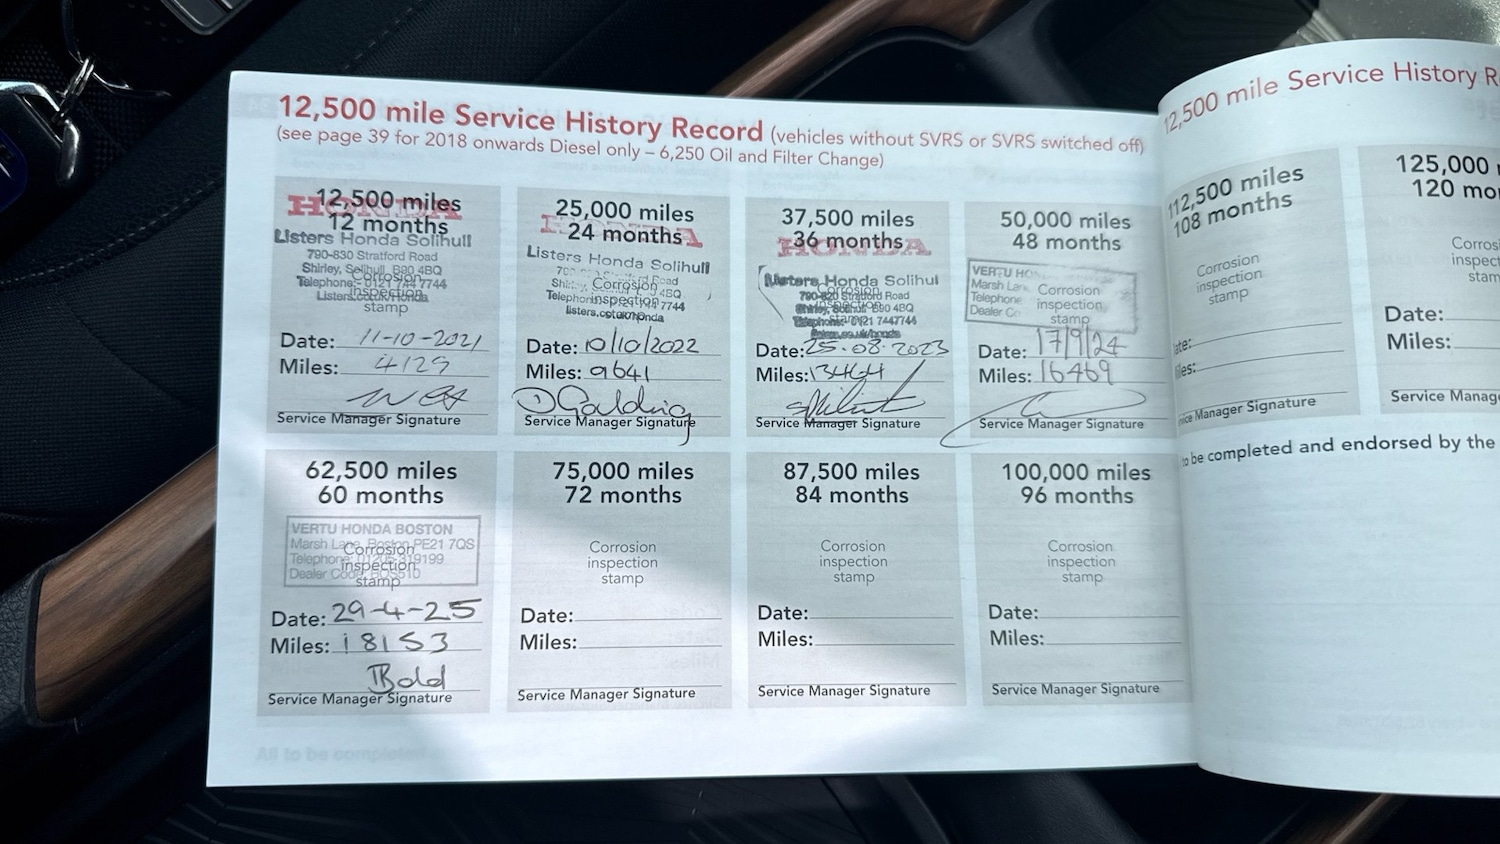 12,500 mile Service History Record (vehicles without SVRS or SVRS switched off)
(see page 39 for 2018 onwards Diesel only – 6,250 Oil and Filter Change)
12,500 miles
HONDA
12 months
Listers Honda Solihull
790-830 Stratford Road
Shirley, Solihull B90 4BQ
Corrosion
Telephone:- 0121 744 7744
inspection
Listers.co.uk/Honda
stamp
Date: 11-10-2021
Miles: 4129
Service Manager Signature
25,000 miles
HONDA
24 months
Listers Honda Solihull
Road
Corrosion
4BQ
Telephone 7744
inspection
listers.co.uk/honda
stamp
Date: 10/10/2022
Miles: 9641
D Goulding
Service Manager Signature
37,500 miles
36 months
HONDA
Listers Honda Solihull
Corrosion
Stratford Road
inspection
Shirley, Solihull B90 4BQ
stamp
Telephone: 0121 7447744
Date: 25.08.2023
Miles: 13464
Service Manager Signature
50,000 miles
48 months
VERTU
Marsh
Corrosion
Telephone
inspection
Dealer
stamp
Date: 17/9/24
Miles: 16469
Service Manager Signature
62,500 miles
60 months
VERTU HONDA BOSTON
Marsh Lane, Boston PE21 7QS
Corrosion
Telephone: 01205 319199
inspection
Dealer Code: BOS510
stamp
Date: 29-4-25
Miles: 18153
Service Manager Signature
75,000 miles
72 months
Corrosion
inspection
stamp
Date:
Miles:
Service Manager Signature
87,500 miles
84 months
Corrosion
inspection
stamp
Date:
Miles:
Service Manager Signature
100,000 miles
96 months
Corrosion
inspection
stamp
Date:
Miles:
Service Manager Signature
All to be completed
12,500 mile Service History R
112,500 miles
108 months
Corrosion
inspection
stamp
ate:
les:
vice Manager Signature
125,000
120 mo
Corrosi
inspect
stam
Date:
Miles:
Service Manag
to be completed and endorsed by the